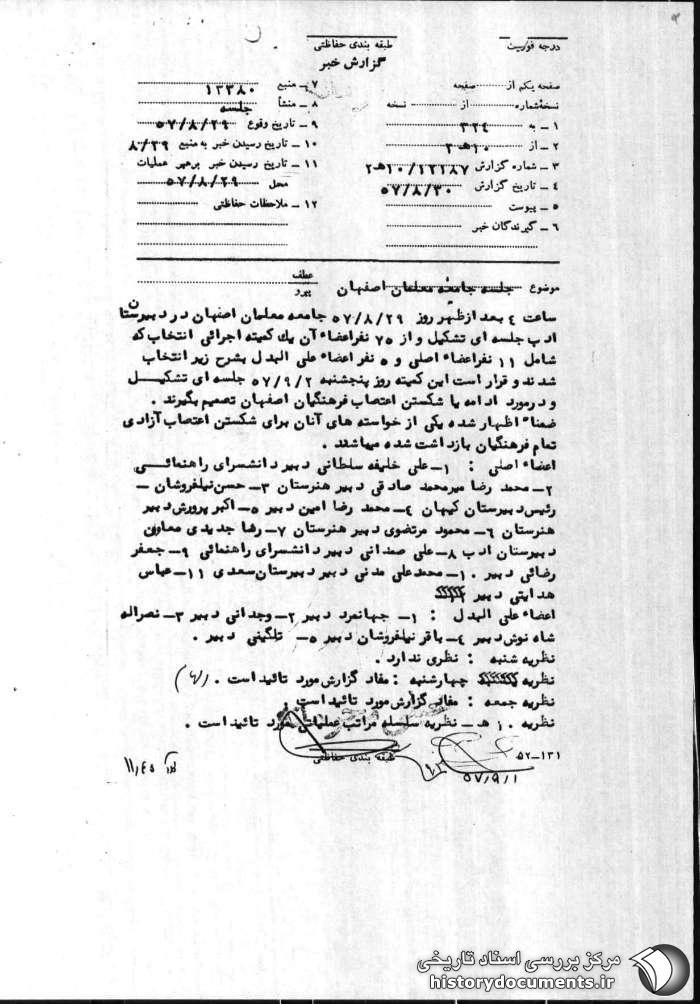 درجه فوریت
طبقه بندی حفاظتی
گزارش خبر
صفحه یکم از صفحه
نسخهٔ شماره از نسخه
۱ ـ به ۳۲۴
۲ ـ از ۱۰هـ۲
۳ ـ شماره گزارش ۱۰/۱۲۱۸۷هـ۲
۴ ـ تاریخ گزارش ۵۷/۸/۳۰
۵ ـ پیوست
۶ ـ گیرندگان خبر
۷ ـ منبع ۱۳۳۸۰
۸ ـ منشأ جلسه
۹ ـ تاریخ وقوع ۵۷/۸/۲۹
۱۰ ـ تاریخ رسیدن خبر به منبع ۸/۲۹
۱۱ ـ تاریخ رسیدن خبر برهبر عملیات
محل ۵۷/۸/۲۹
۱۲ ـ ملاحظات حفاظتی
موضوع جلسه جامعه معلمان اصفهان
عطف
پیرو
ساعت ٤ بعد ازظهر روز ۵۷/۸/۲۹ جامعه معلمان اصفهان در دبیرستان
ادب جلسه ای تشکیل و از ۷۵ نفراعضاء آن یک کمیته اجرائی انتخاب که
شامل ۱۱ نفراعضاء اصلی و ۵ نفر اعضاء علی البدل بشرح زیر انتخاب
شدند و قرار است این کمیته روز پنجشنبه ۵۷/۹/۲ جلسه ای تشکیل
و درمورد ادامه یا شکستن اعتصاب فرهنگیان اصفهان تصمیم بگیرند .
ضمناً اظهار شده یکی از خواسته های آنان برای شکستن اعتصاب آزادی
تمام فرهنگیان بازداشت شده میباشد .
اعضاء اصلی : ۱ـ علی خلیفه سلطانی دبیر دانشسرای راهنمائی
۲ـ محمد رضا میرمحمد صادقی دبیر هنرستان ۳ـ حسن نیلفروشان ـ
رئیس دبیرستان کیهان ٤ـ محمد رضا امین دبیر ۵ـ اکبر پرورش دبیر
هنرستان ۶ـ محمود مرتضوی دبیر هنرستان ۷ـ رضا جدیدی معاون
دبیرستان ادب ۸ـ علی صمدانی دبیر دانشسرای راهنمائی ۹ـ جعفر
رضائی دبیر ۱۰ـ محمدعلی مدنی دبیر دبیرستان سعدی ۱۱ـ عباس
هدایتی دبیر
اعضاء علی البدل : ۱ـ جهانمرد دبیر ۲ـ وجدانی دبیر ۳ـ نصراله
شاه نوش دبیر ٤ـ باقر نیلفروشان دبیر ۵ـ تلگینی دبیر .
نظریه شنبه : نظری ندارد .
نظریه چهارشنبه : مفاد گزارش مورد تائید است .
نظریه جمعه : مفاد گزارش مورد تائید است .
نظریه ۱۰ هـ ـ نظریه سلسله مراتب عملیاتی مورد تائید است .
طبقه بندی حفاظتی
۵۲ـ۱۳۱
۵۷/۹/۱
مرکز بررسی اسناد تاریخی
historydocuments.ir